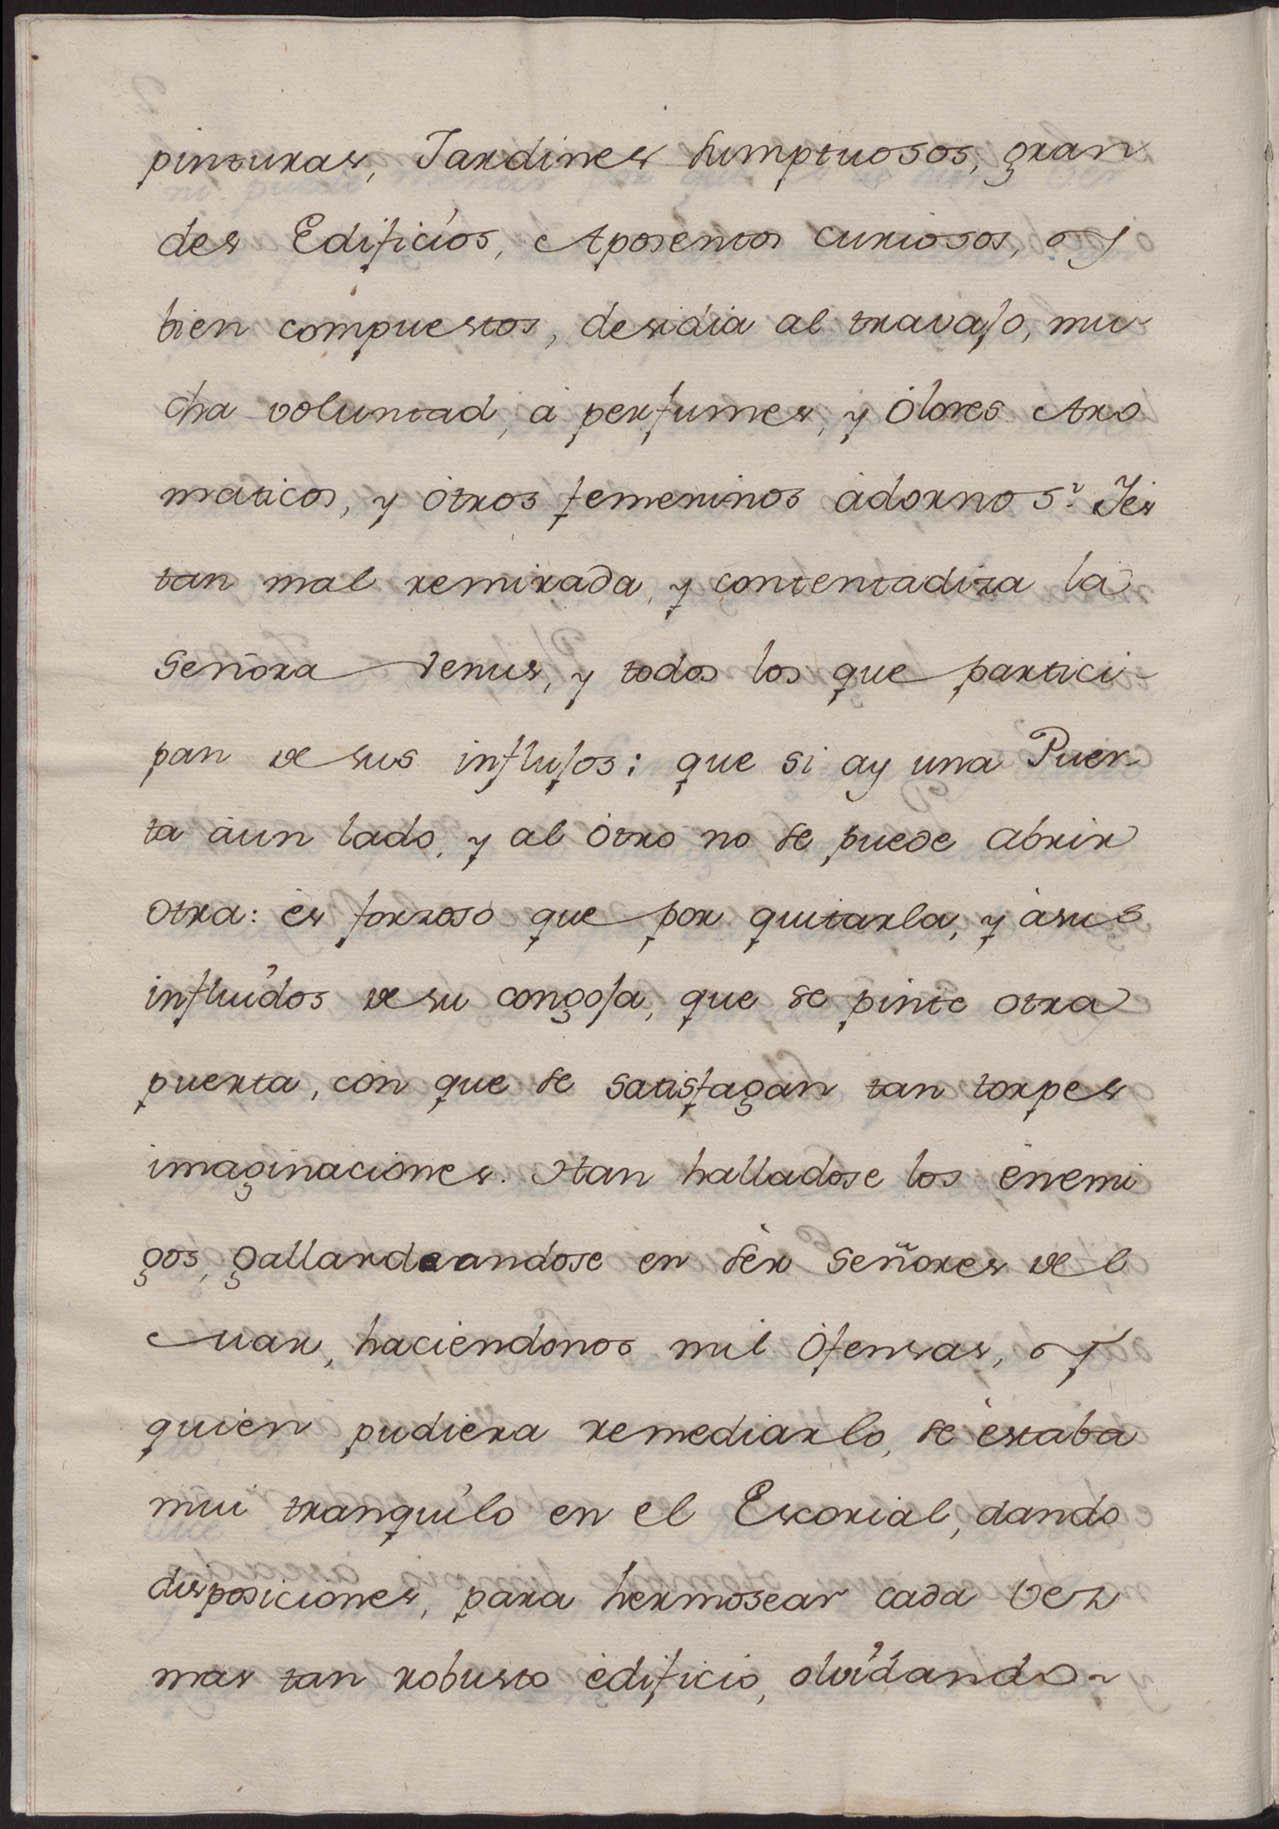 pinturas, Jardines sumptuosos, gran
des Edificios, Aposentos curiosos, y
bien compuestos, desidia al travajo, mu-
cha voluntad, à perfumes, y òlores Aro
maticos, y òtros femeninos àdornos? Yes
tan mal remirada, y contentadiza la
Señora Venus, y todos los que partici-
pan de sus influjos: que si ay una Puer
ta àun lado, y al òtro no se puede abrir
otra: ès forzoso que por quitarla, y àsus
influìdos de su congoja, que se pinte otra
puerta, con que se satisfagan tan torpes
imaginaciones. Han halladose los ènemi
gos, gallardeandose en sèr Señores del
Mar, haciendonos mil òfensas, y
quien pudiera remediarlo, se èstaba
mui tranquilo en el Escorial, dando
disposiciones, para hermosear cada vez
mas tan robusto èdificio, olvidando-